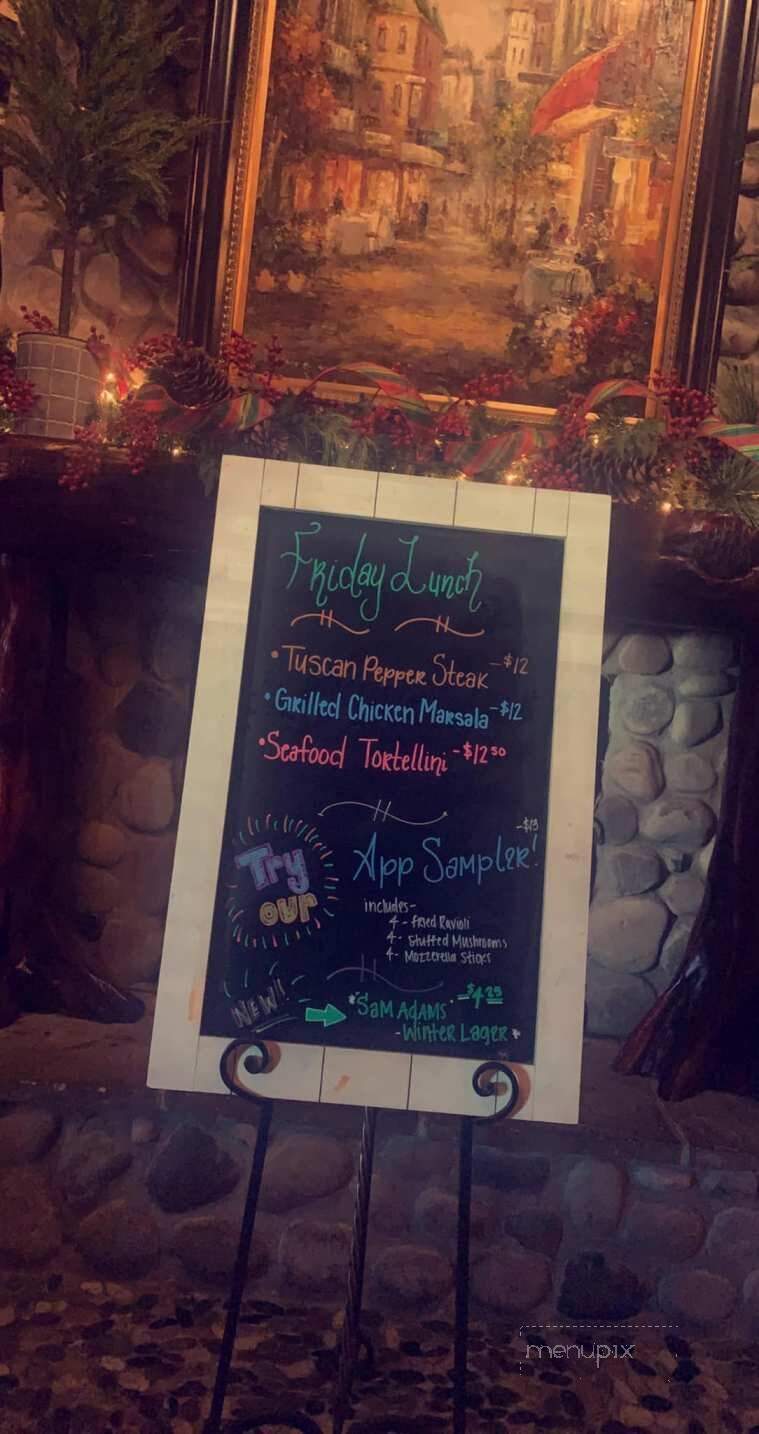 Friday Lunch
• Tuscan Pepper Steak -$12
• Grilled Chicken Marsala -$12
• Seafood Tortellini -$12 50
Try our
App Sampler! -$13
includes-
4- Fried Ravioli
4- Stuffed Mushrooms
4- Mozzerella Sticks
NEW!! → *Sam Adams -$4 25
-Winter Lager*
menupix